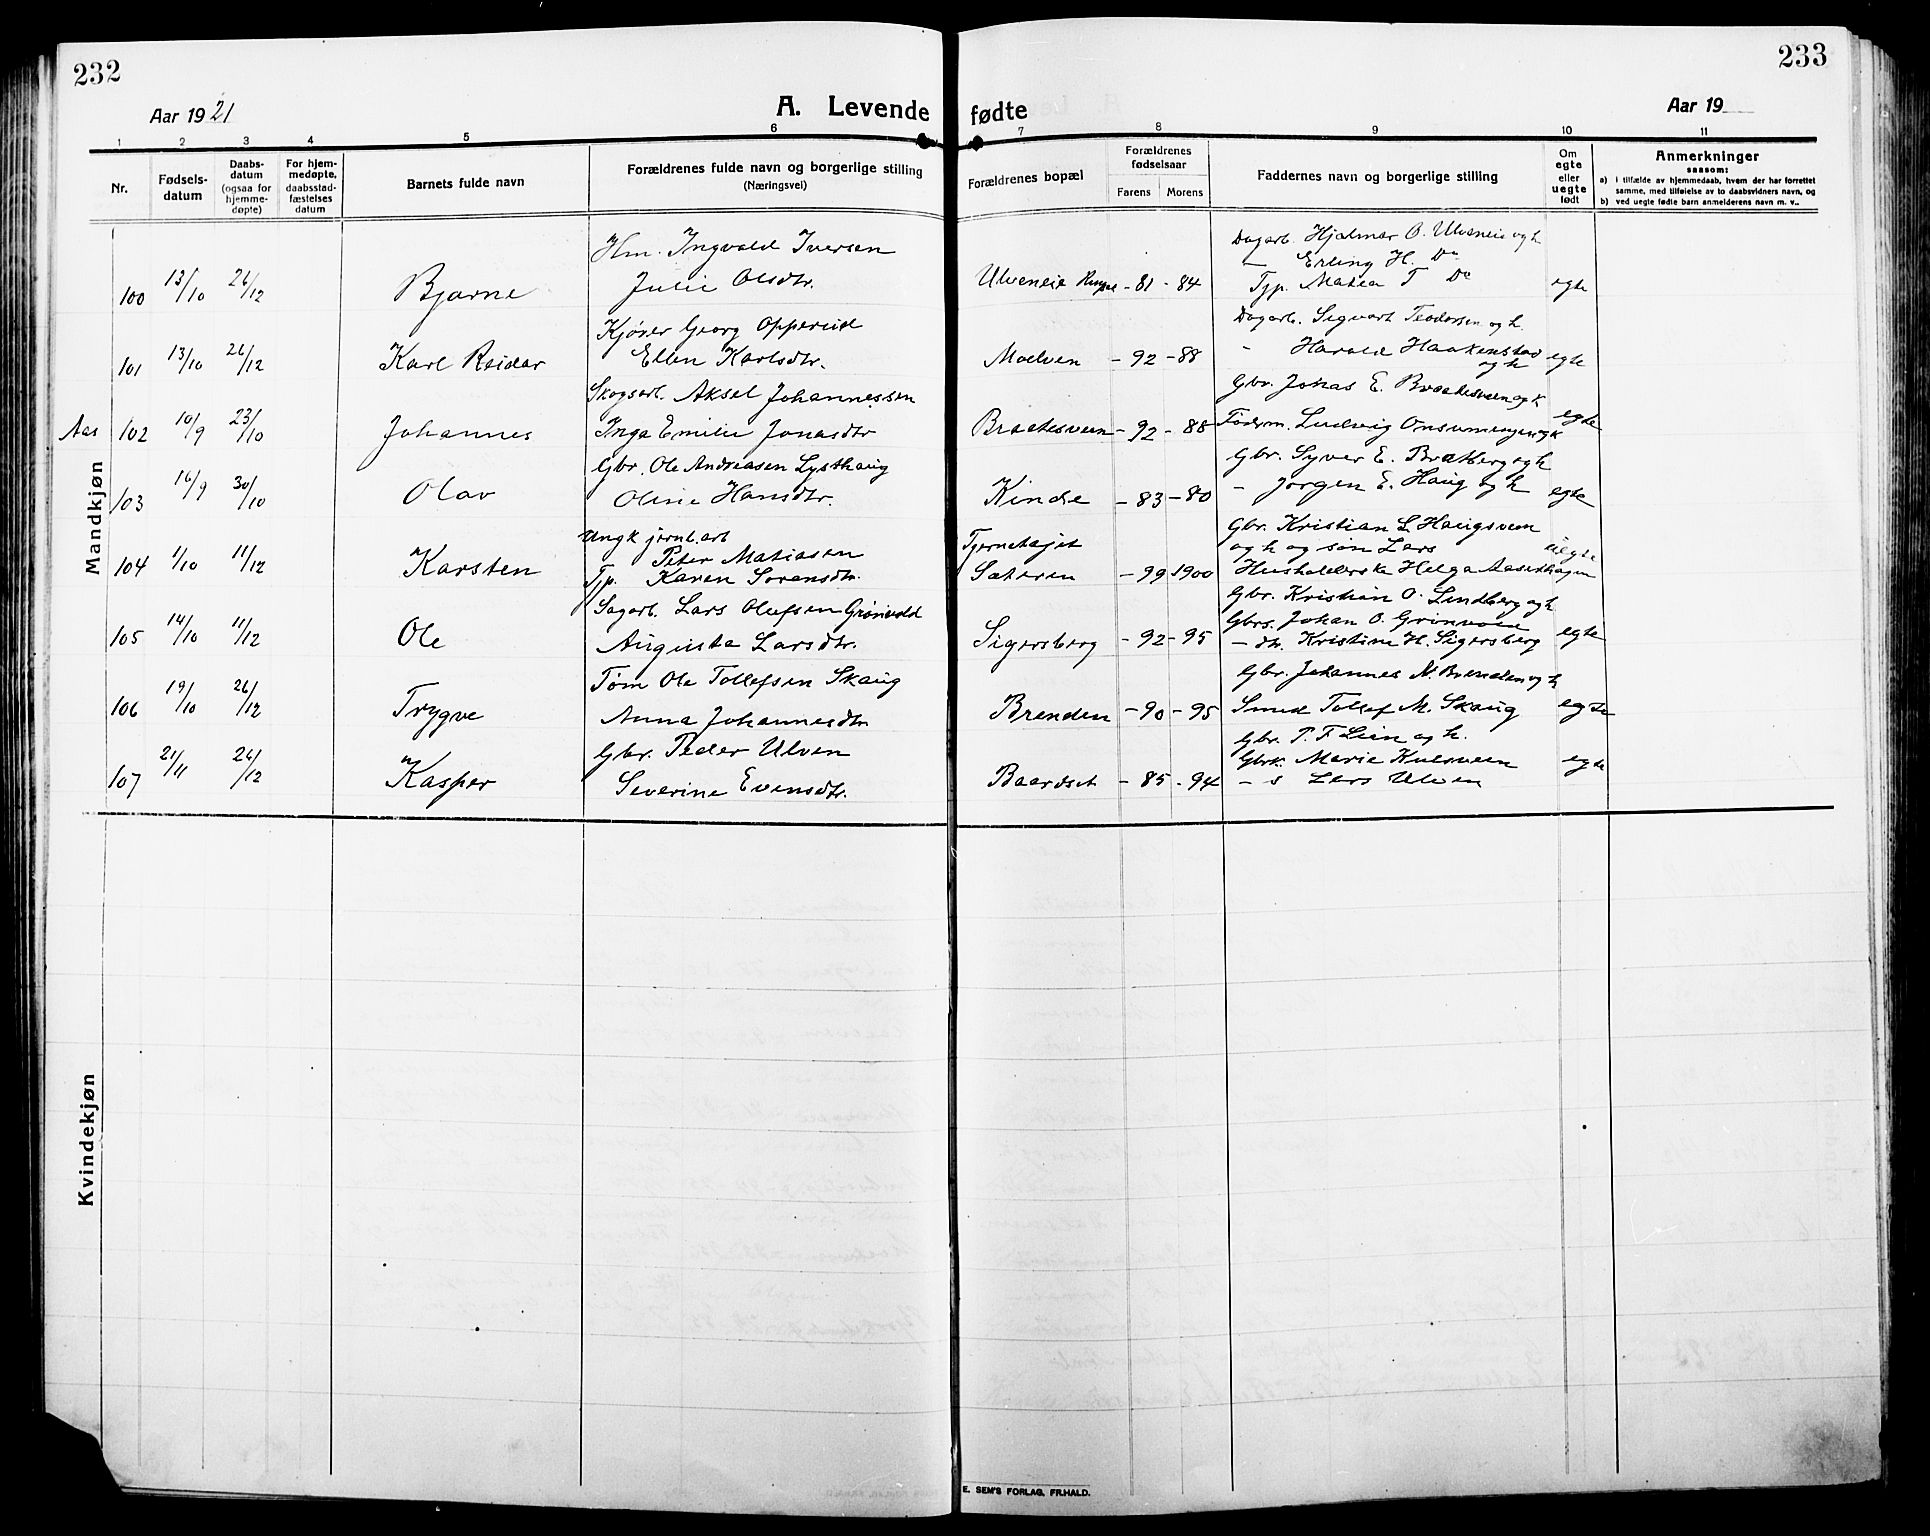 232
233
Aar 1921
A. Levende fødte
Aar 19
1 2 3 4 5 6 7 8 9 10 11
Nr.
Fødsels-
datum
Daabs-
datum
(ogsaa for
hjemme-
døpte)
For hjem-
medøpte,
daabsstad-
fæstelses
datum
Barnets fulde navn
Forældrenes fulde navn og borgerlige stilling
(Næringsvei)
Forældrenes bopæl
Forældrenes
fødselsaar
Farens Morens
Faddernes navn og borgerlige stilling
Om
egte
eller
uegte
født
Anmerkninger
saasom:
a) i tilfælde av hjemmedaab, hvem der har forrettet
samme, med tilføielse av to daabsvidners navn, og
b) ved uegte fødte barn anmelderens navn m. v..
Mandkjøn
Hm. Ingvald Iversen
Dagarb. Hjalmar O. Ulveneie og h
— Erling H. Do
100 13/10 26/12 Bjarne Julie Olsdtr. Ulveneie - 81 - 84 Tjp. Matea T Do egte
Kjører Georg Opperud
Dagarb. Sigvart Teodorsen og h.
101 13/10 26/12 Karl Reidar Ellen Karlsdtr. Moelven - 92 - 88 - Harald Haakenstad egte
og h
Skogsarb. Aksel Johannessen
Gbr. Jonas E. Braatesveen og k
Aas 102 10/9 23/10 Johannes Inga Emilie Jonasdtr Braatesveen - 92 - 88 Ludvig egte
Gbr. Ole Andreasen Lysthaug
Gbr. Syver E. Bratberg og h
103 16/9 30/10 Olav Oline Hansdtr. Kinde - 83 - 80 - Jørgen E. Haug og h egte
Ungk jernb.arb
Peter Matiasen
Gbr. Kristian L Haugsveen
og h og søn Lars
104 1/10 11/12 Karsten Tjp. Karen Sorensdtr. Sæteren - 99 1900 Husholderske Helga Aasenhagen uegte
Sagarb. Lars Olufsen Grønvold
Gbr. Kristian O. Lindberg og h
Gbrs. Johan O. Grønvold
105 14/10 11/12 Ole Augusta Larsdtr. Sigersberg - 92 - 95 - dtr. Kristine H. Sigersberg egte
Tøm Ole Tollefsen Skaug
Gbr. Johannes N. Brenden og h
106 19/10 26/12 Trygve Anna Johannesdtr. Brenden - 90 - 95 Smed Tollef M. Skaug egte
Gbr. Peder Ulven
Gbr. P. F Lien og h.
Gbrk. Marie Kulsveen
107 21/11 26/12 Kasper Severine Evensdtr. Baardset - 85 - 94 - s Lars Ulven egte
Kvindekjøn
E. SEM'S FORLAG, FR.HALD.